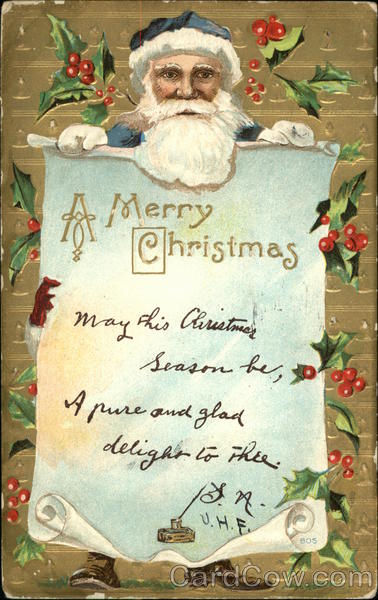 A Merry
Christmas
May this Christmas
Season be,
A pure and glad
delight to thee.
S. N.
U.H.F.
805
CardCow.com